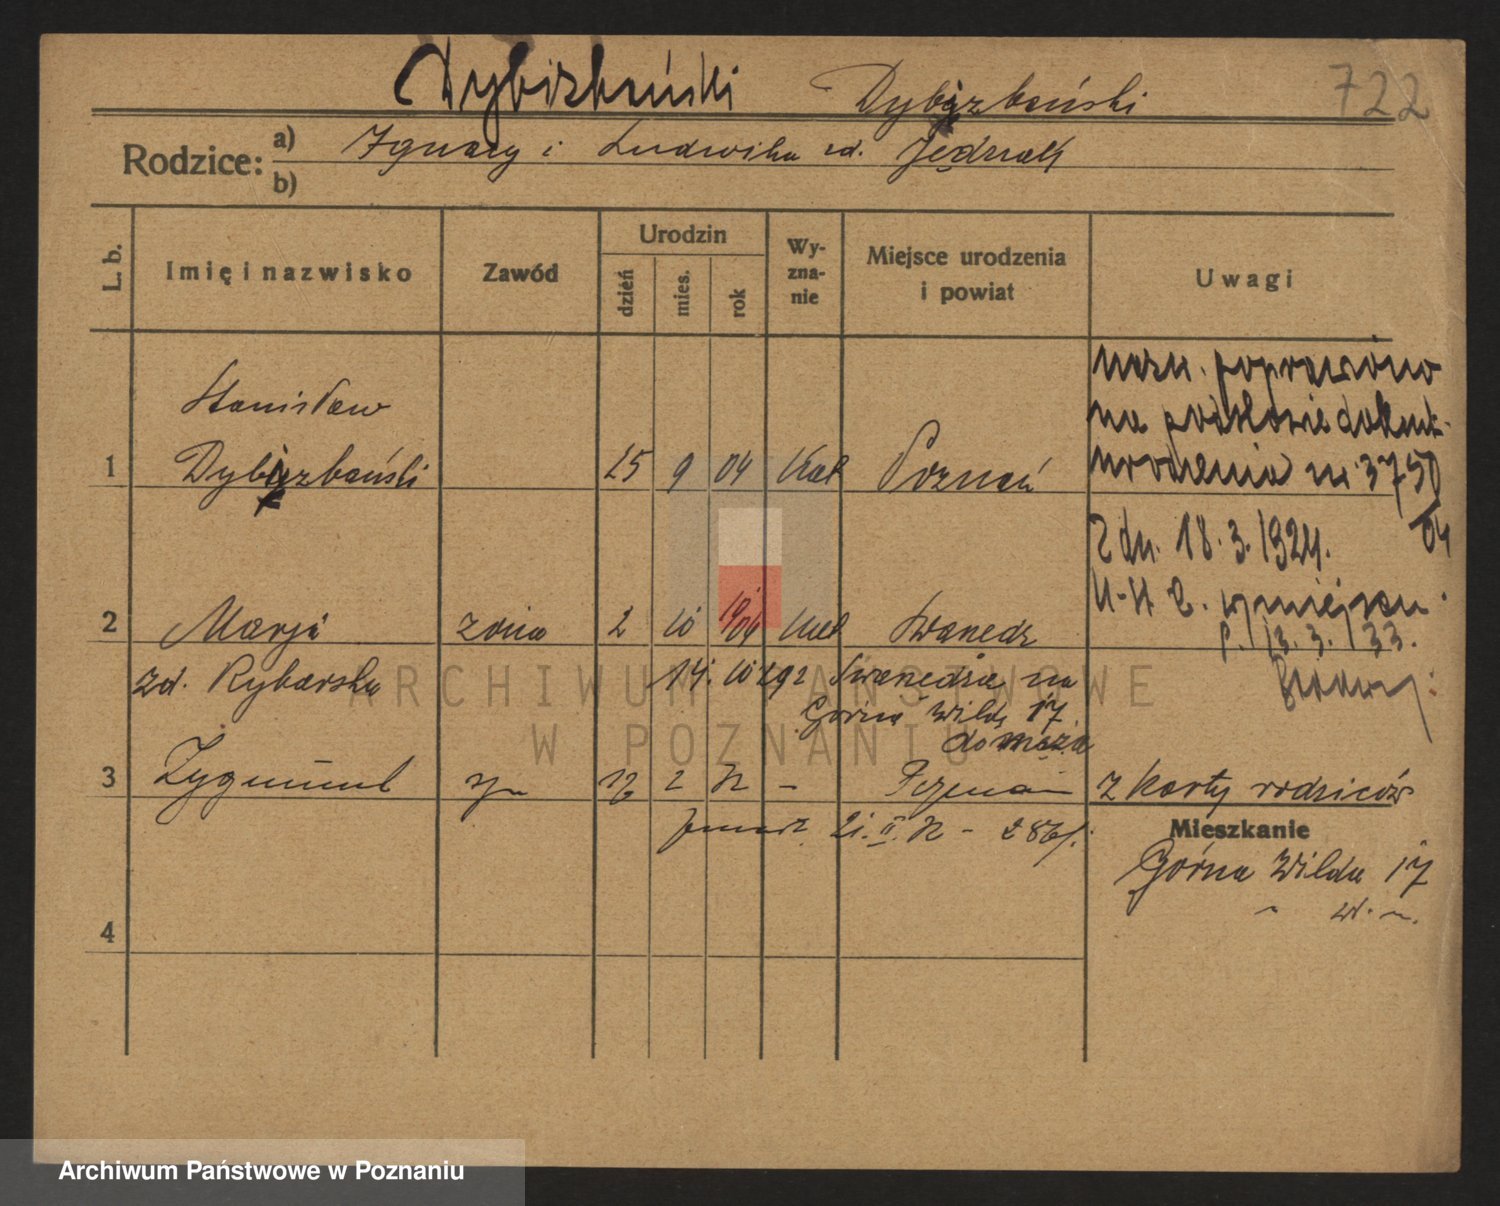 Dybizbański Dybizbański 722
Rodzice: a) Ignacy i Ludwika zd. Jędrzak
b)
L. b. Imię i nazwisko Zawód Urodzin dzień mies. rok Wyznanie Miejsce urodzenia i powiat Uwagi
Stanisław
1 Dybizbański 25 9 04 Kat Poznań
nazw. poprawiono
na podstawie dokum.
urodzenia nr. 3750/04
z dn. 18.3.1924.
2 Marja żona 2 10 1904 kat Swanedz
P. 13.3.33.
zd. Rybarska 14. 10 292 Swanedzie na
Górna Wilda 17
do męża
3 Zygmunt syn 2 32 - Poznań z karty rodziców
21. II. 32 -
Mieszkanie
Górna Wilda 17
4
ARCHIWUM PAŃSTWOWE
W POZNANIU
Archiwum Państwowe w Poznaniu